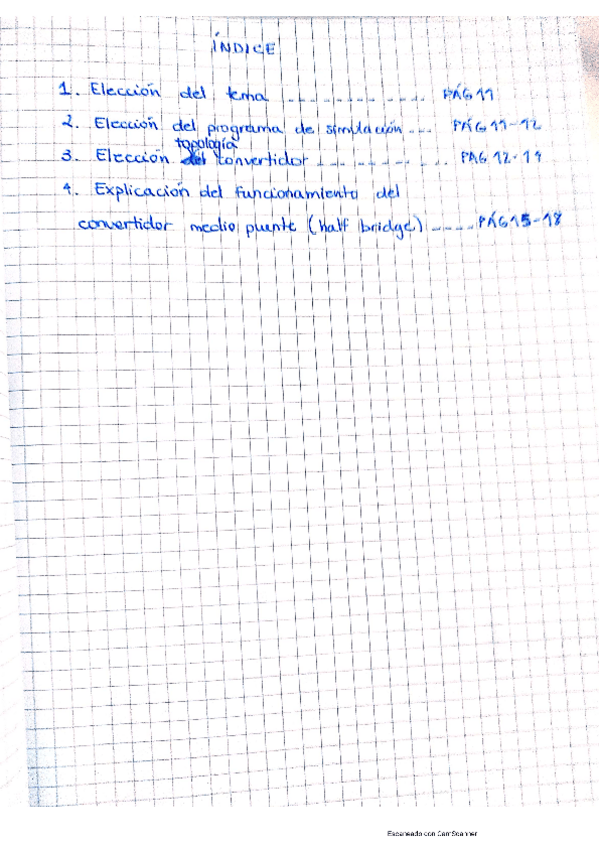 ÍNDICE
1. Elección del tema ............. PÁG 11
2. Elección del programa de simulación ... PÁG 11-12
topología
3. Elección del convertidor ............ PAG 12-14
4. Explicación del funcionamiento del
convertidor medio puente (half bridge) ..... PÁG 15-18
Escaneado con CamScanner